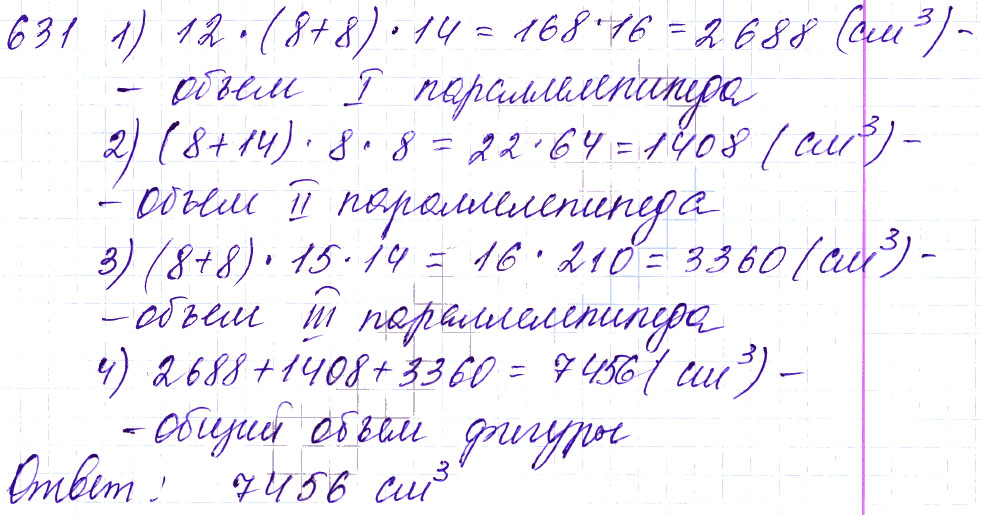 631 1) 12 · (8+8) · 14 = 168 · 16 = 2688 (см³) -
- объем I параллелепипеда
2) (8+14) · 8 · 8 = 22 · 64 = 1408 (см³) -
- объем II параллелепипеда
3) (8+8) · 15 · 14 = 16 · 210 = 3360 (см³) -
- объем III параллелепипеда
4) 2688+1408+3360 = 7456 (см³) -
- общий объем фигуры
Ответ: 7456 см³